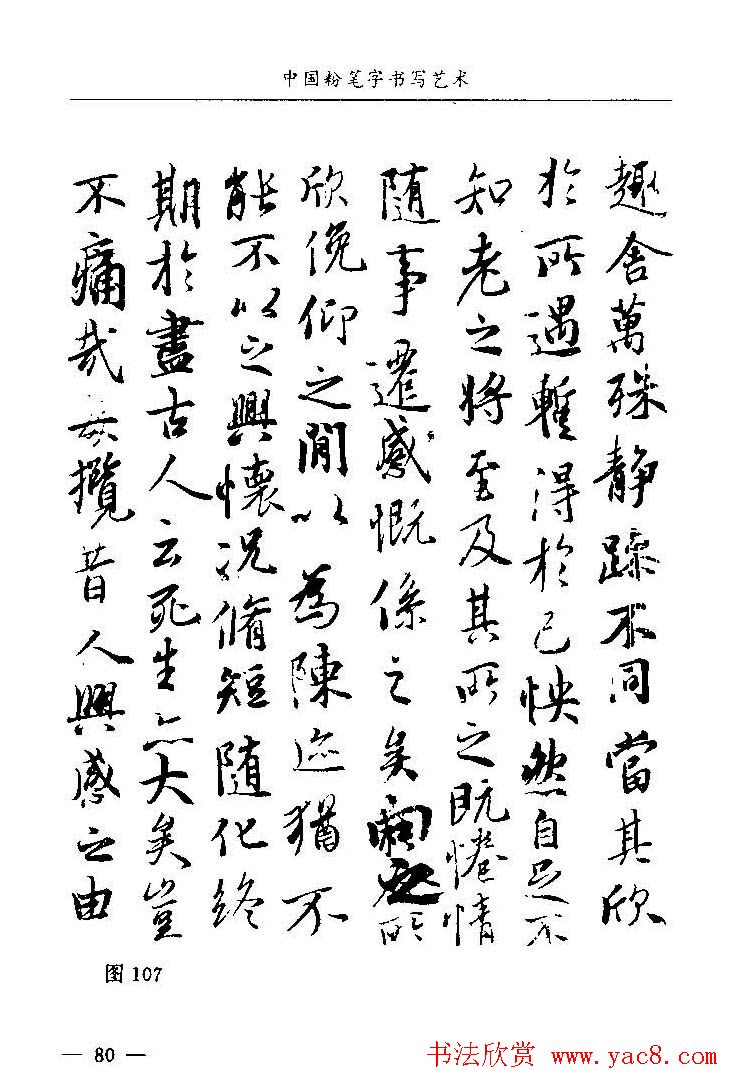 中国粉笔字书写艺术
趣舍萬殊静躁不同當其欣
於所遇暫得於己怏然自足不
知老之將至及其所之既惓情
隨事遷感慨係之矣向之所
欣俛仰之間以為陳迹猶不
能不以之興懷況脩短隨化終
期於盡古人云死生亦大矣豈
不痛哉每攬昔人興感之由
图107
— 80 —
书法欣赏 www.yac8.com